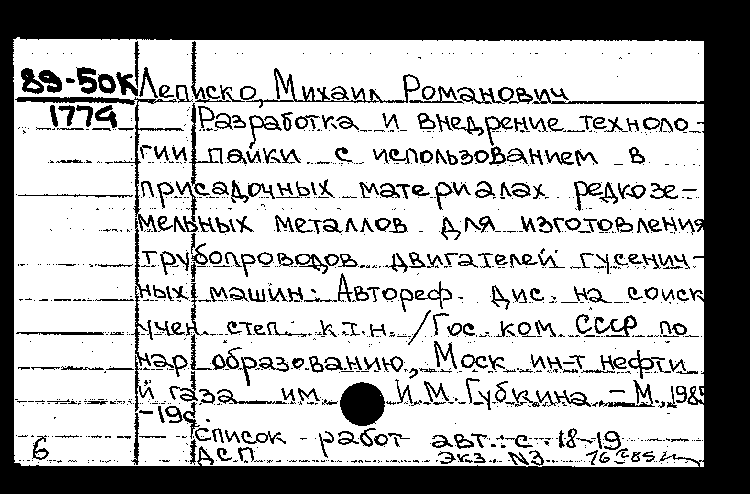 89-50К Леписко, Михаил Романович
1779 Разработка и внедрение техноло-
гии пайки с использованием в
присадочных материалах редкозе-
мельных металлов для изготовления
трубопроводов двигателей гусенич-
ных машин: Автореф. дис. на соиск
учен. степ. к.т.н. /Гос. ком. СССР по
нар образованию, Моск ин-т нефти
и газа им. И.М. Губкина. - М., 198
-19с.
Список работ авт.: с 18-19
6 ДСП экз. N3